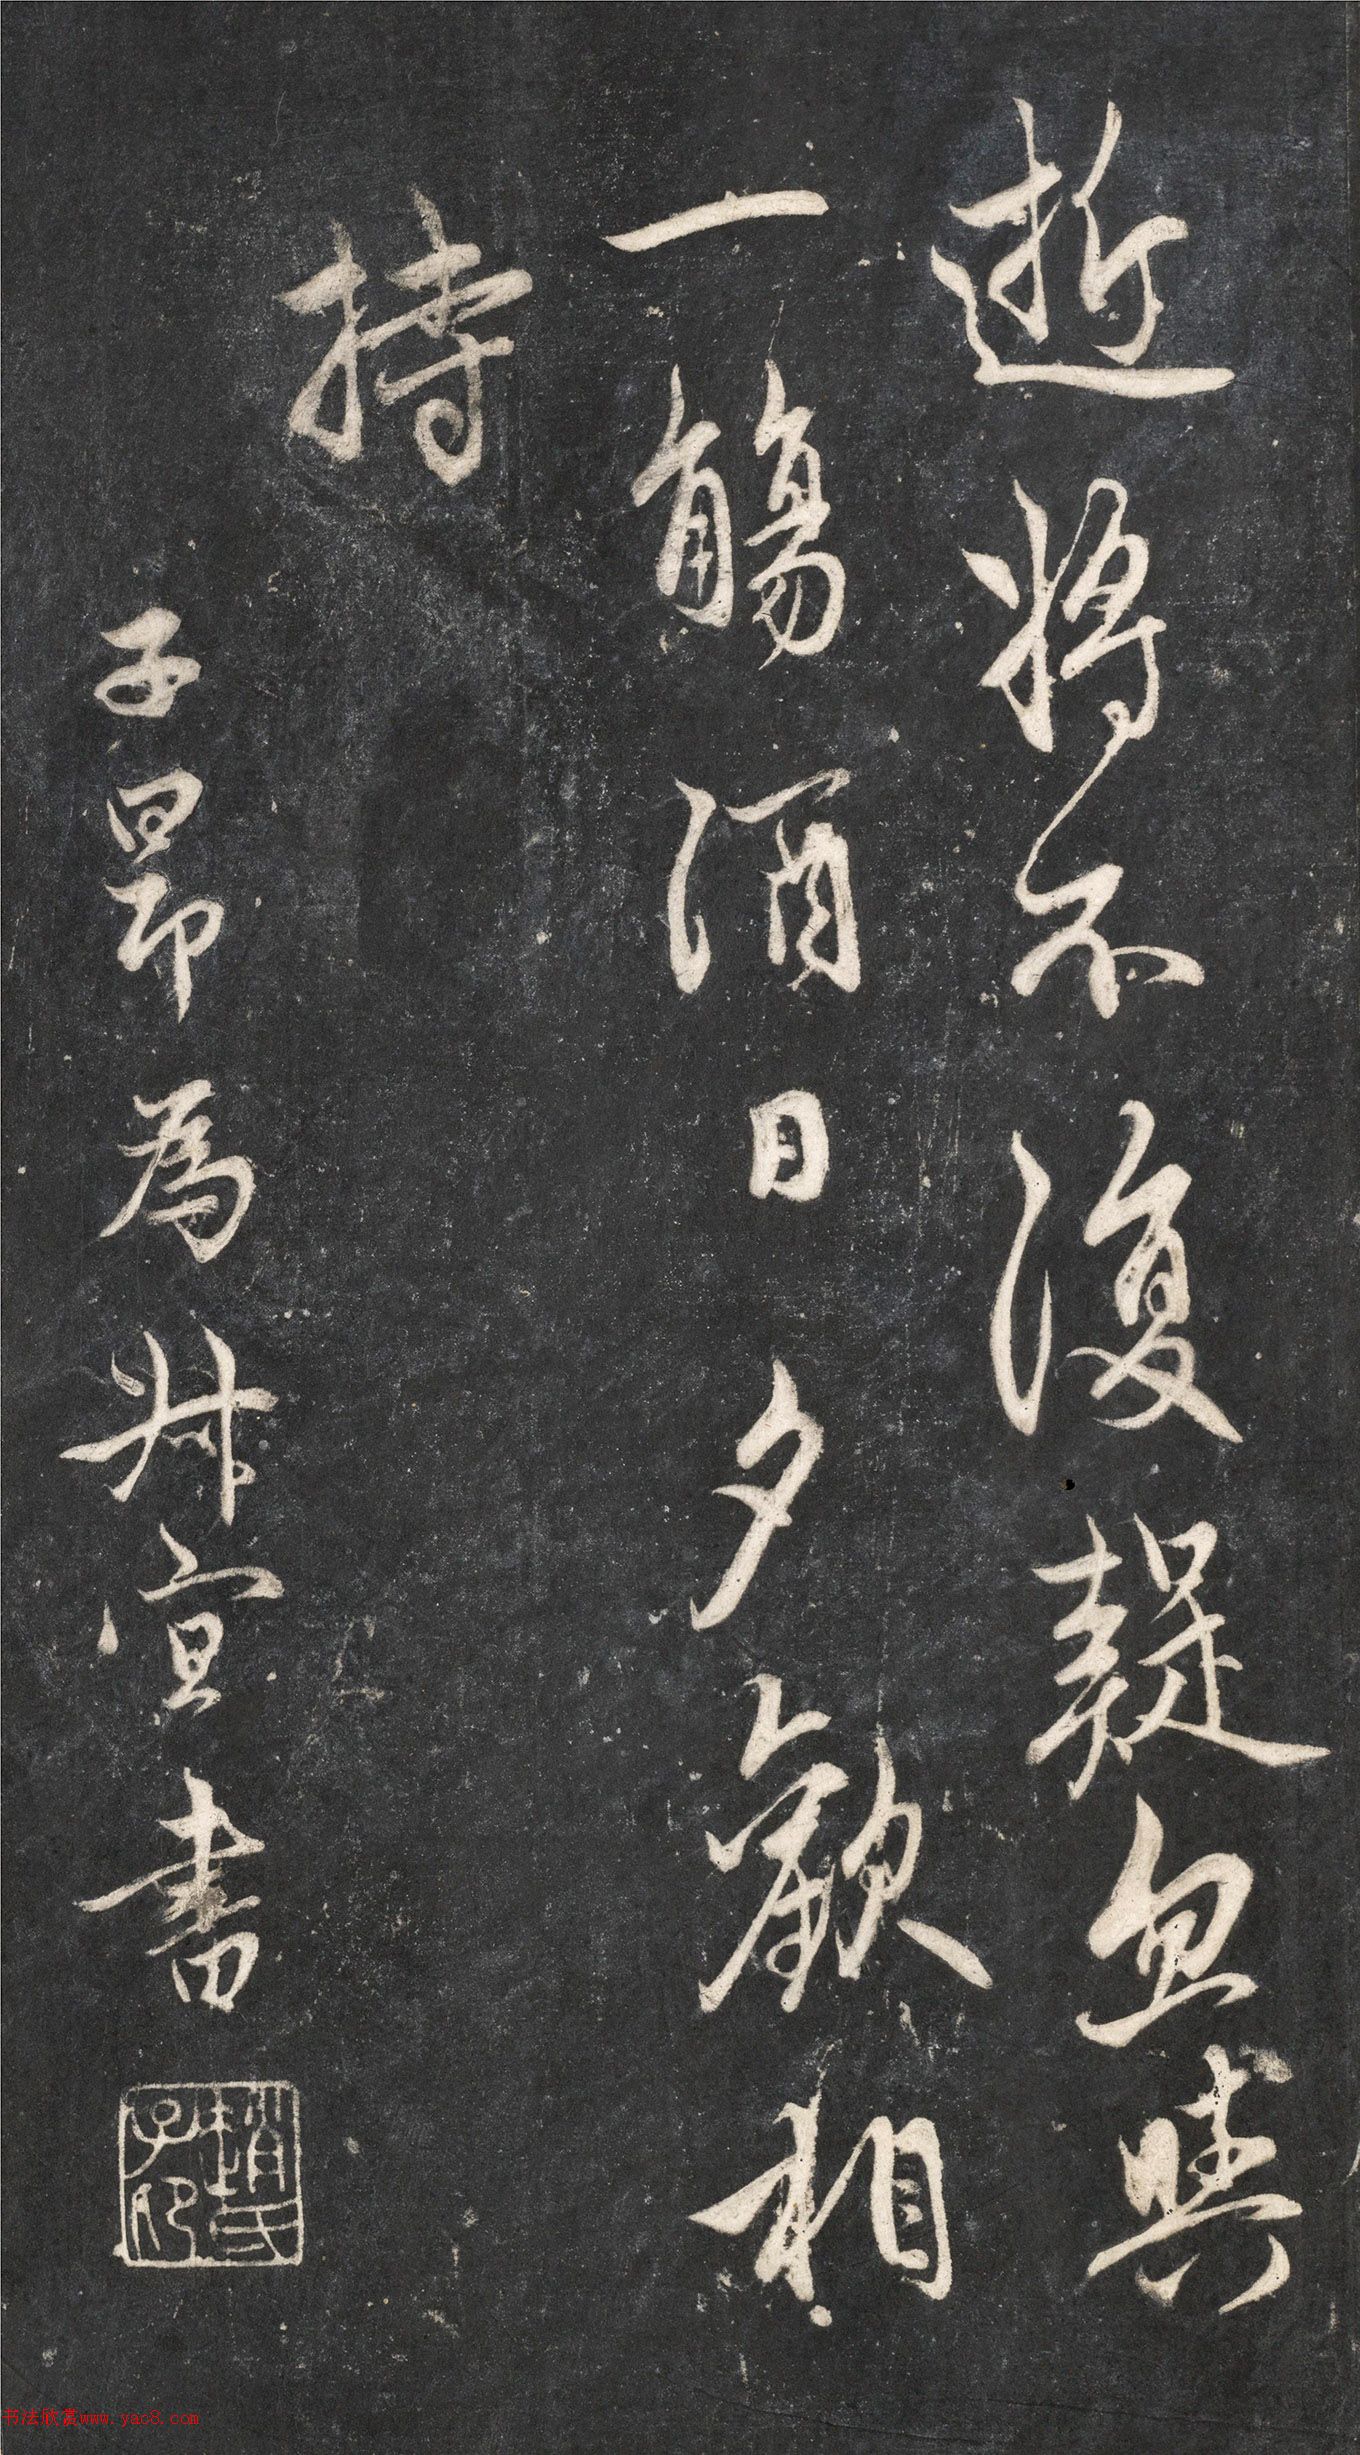 逝將不復疑忽與
一觴酒日夕歡相
持
子昂為叔宣書
趙氏子印
书法欣赏www.yac8.com